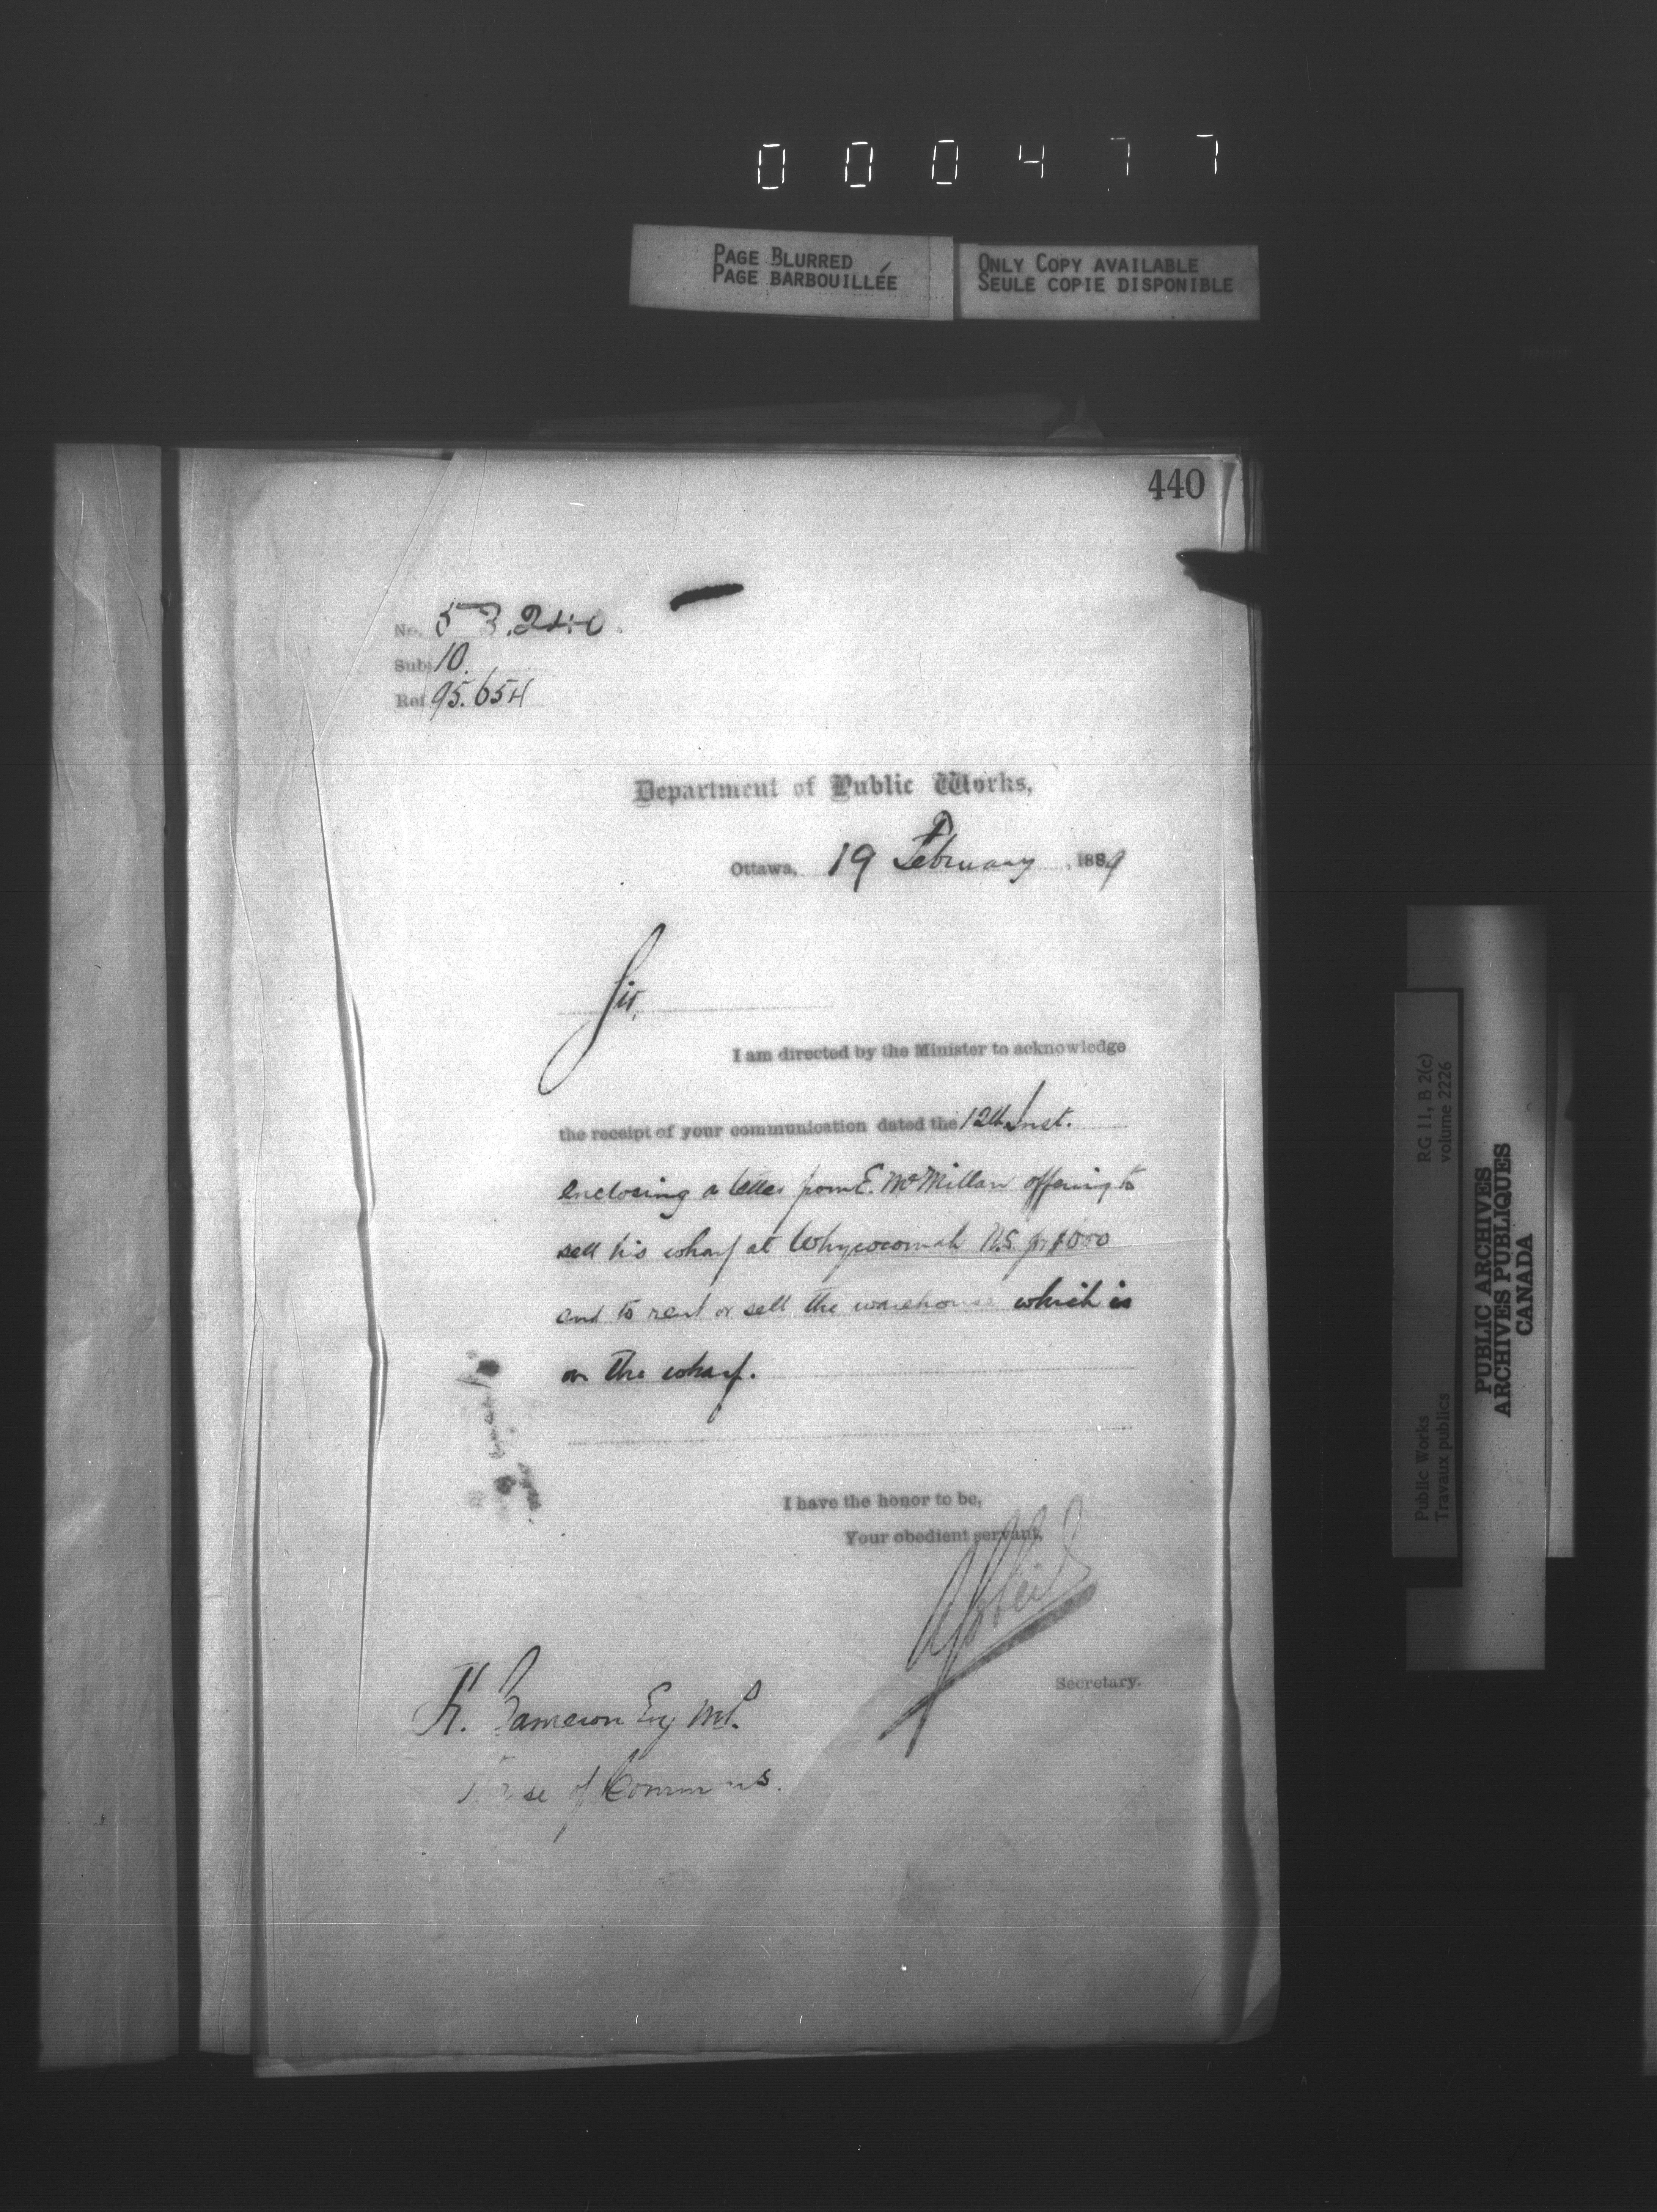 000477
PAGE BLURRED
PAGE BARBOUILLÉE
ONLY COPY AVAILABLE
SEULE COPIE DISPONIBLE
440
No. 53.240.
Sub. 10.
Ref. 95.654
Department of Public Works,
Ottawa, 19 February, 1889
Sir,
I am directed by the Minister to acknowledge
the receipt of your communication dated the 12th Inst.
enclosing a letter from E. McMillan offering to
sell his wharf at Whycocomah N.S. for
and to rent or sell the warehouse which is
on the wharf.
I have the honor to be,
Your obedient servant,
Secretary.
Cameron Esq M.P.
House of Commons.
Public Works
Travaux publics
RG 11, B 2(c)
volume 2226
PUBLIC ARCHIVES
ARCHIVES PUBLIQUES
CANADA